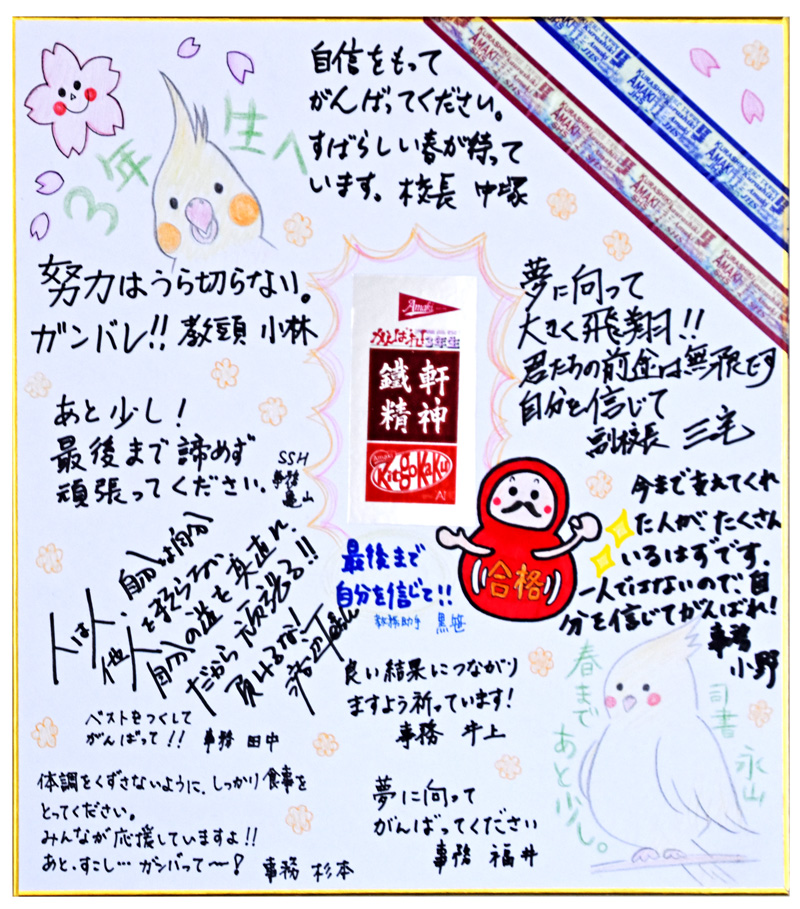 3年生へ
自信をもって
がんばってください。
すばらしい春が待って
います。校長 中塚
努力はうら切らない。
ガンバレ!! 教頭 小林
夢に向って
大きく飛翔!!
君たちの前途は無限です
自分を信じて
副校長 三宅
Amaki
がんばれ!3年生
鐵軒
精神
Amaki
KitgoKaKu
あと少し!
最後まで諦めず
頑張ってください。
SSH
事務
亀山
今まで支えてくれ
た人が、たくさん
いるはずです。
一人ではないので、自
分を信じてがんばれ!
事務
小野
合格
最後まで
自分を信じて!!
教務助手 黒笹
人は人、自分は自分
自分の道を真直ぐ
だから頑張る!!
負けるな!
良い結果につながり
ますよう祈っています!
事務 井上
ベストをつくして
がんばって!! 事務 田中
体調をくずさないように、しっかり食事を
とってください。
みんなが応援していますよ!!
あと、すこし…ガンバって〜! 事務 杉本
夢に向って
がんばってください
事務 福井
春まで
あと少し。
司書 永山
KURASHIKI
AMAKI
JHS